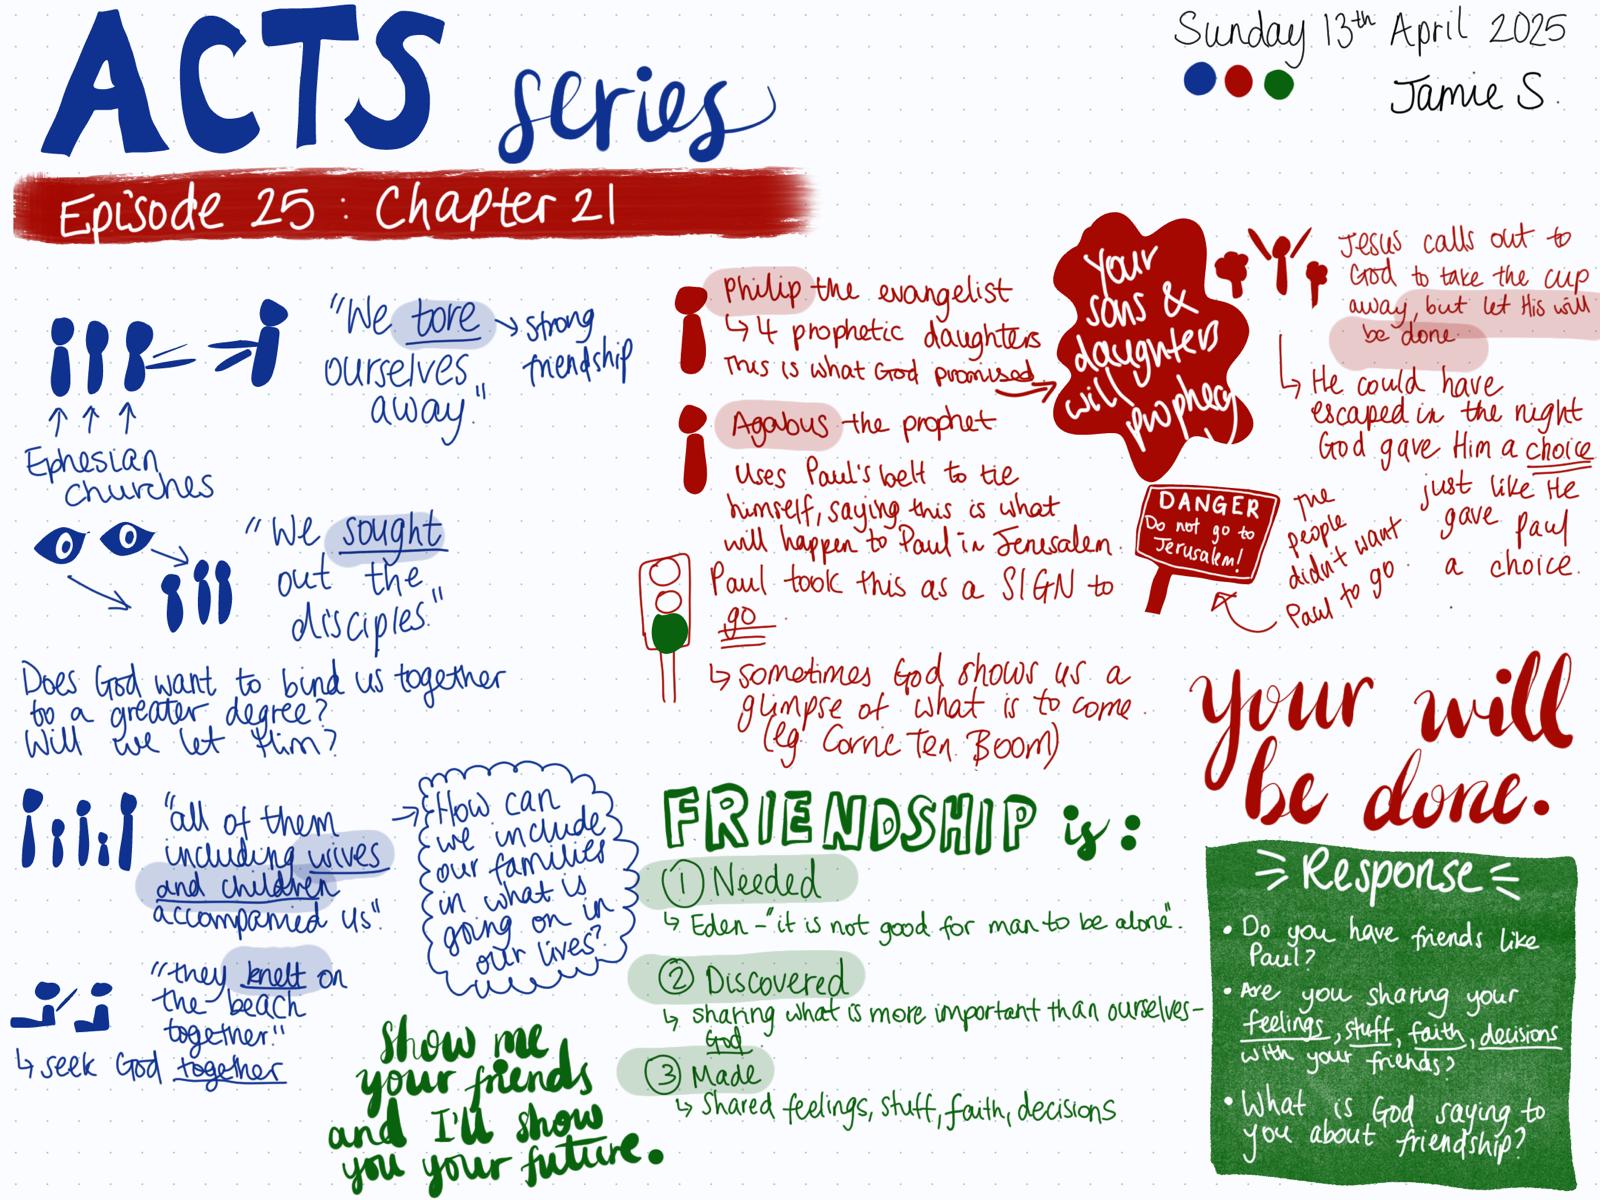 ACTS series
Sunday 13th April 2025
Jamie S.
Episode 25 : Chapter 21
"We tore
ourselves
away."
strong
friendship
Ephesian
churches
"We sought
out the
disciples."
Does God want to bind us together
to a greater degree?
Will we let Him?
"all of them
including wives
and children
accompanied us".
How can
we include
our families
in what is
going on in
our lives?
"they knelt on
the beach
together."
↳ seek God together
Show me
your friends
and I'll show
you your future.
Philip the evangelist
↳ 4 prophetic daughters
This is what God promised
Your
sons &
daughters
will
prophecy
Agabus the prophet
Uses Paul's belt to tie
himself, saying this is what
will happen to Paul in Jerusalem.
Paul took this as a SIGN to
go
↳ sometimes God shows us a
glimpse of what is to come.
(eg. Corrie Ten Boom)
Jesus calls out to
God to take the cup
away, but let His will
be done.
↳ He could have
escaped in the night
God gave Him a choice
just like He
gave Paul
a choice.
DANGER
Do not go to
Jerusalem!
The
people
didn't want
Paul to go.
your will
be done.
FRIENDSHIP is:
① Needed
↳ Eden - "it is not good for man to be alone".
② Discovered
↳ sharing what is more important than ourselves -
God
③ Made
↳ Shared feelings, stuff, faith, decisions
Response
• Do you have friends like
Paul?
• Are you sharing your
feelings, stuff, faith, decisions
with your friends?
• What is God saying to
you about friendship?